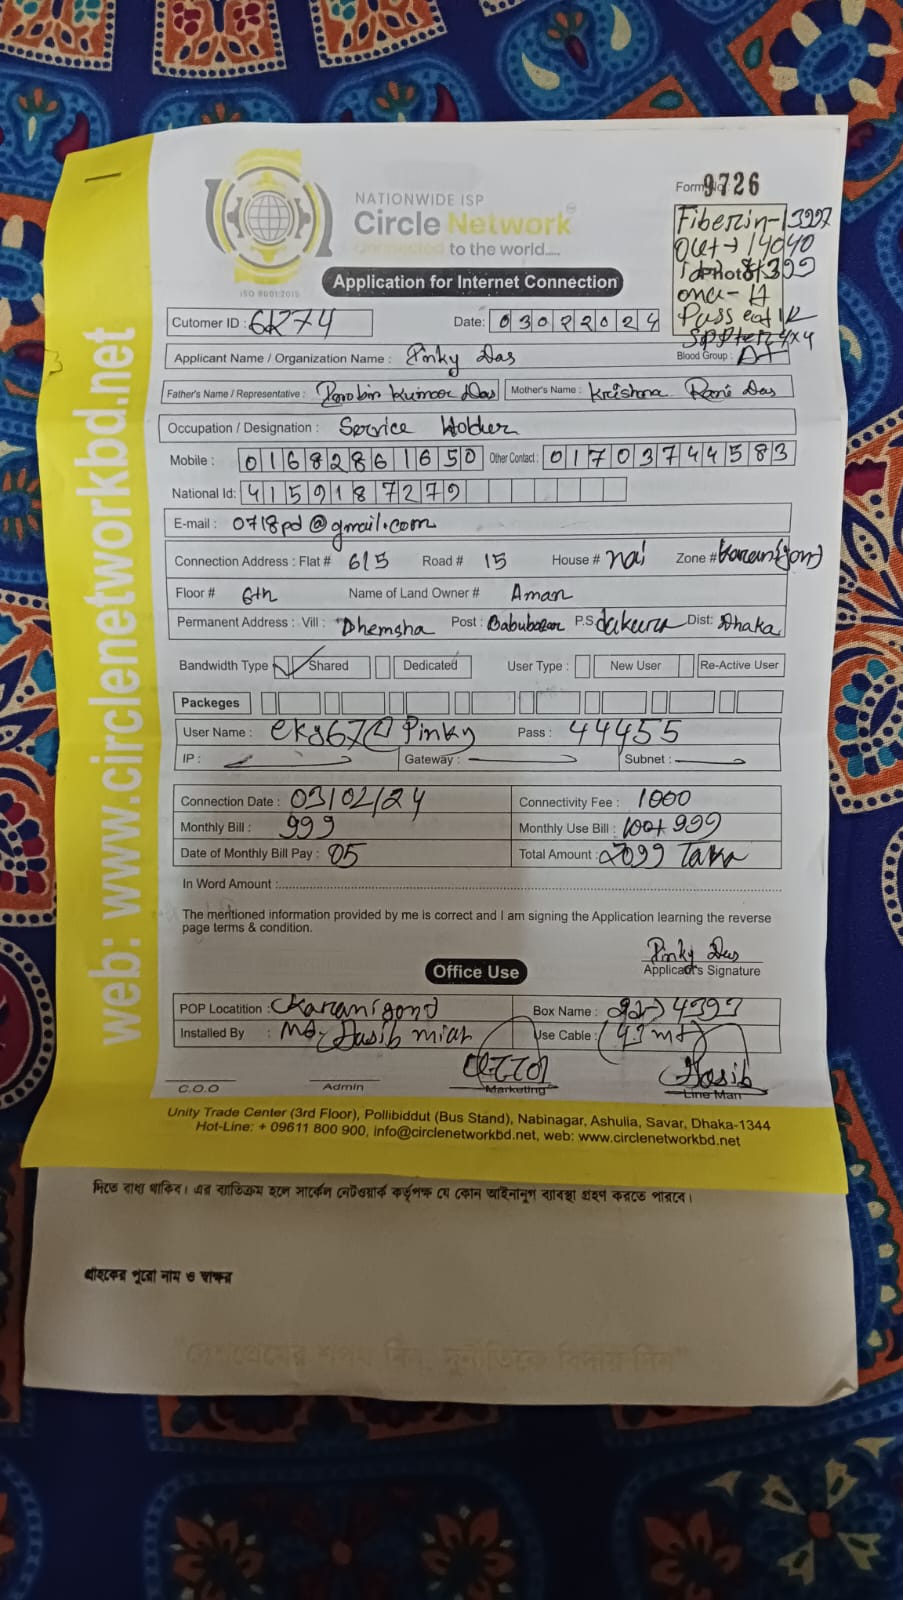 NATIONWIDE ISP
Circle Network
Connected to the world.....
ISO 9001:2015
Form No: 9726
Fiberin-
out → 14040
onu- A
Application for Internet Connection
Cutomer ID : 6R274
Date: 03022024
Applicant Name / Organization Name : Pinky Das
Blood Group : A+
Father's Name / Representative : Kumar Das Mother's Name : Krishna Rani Das
Occupation / Designation : Service Holder
Mobile : 01682861650 Other Contact : 01703744583
National Id: 4159187279
E-mail : 0718pd@gmail.com
Connection Address : Flat # 6/5 Road # 15 House # nai Zone #
Floor # 6th Name of Land Owner # Aman
Permanent Address : Vill : Dhemsha Post : Babubazar P.S Dist: Dhaka
Bandwidth Type Shared Dedicated User Type : New User Re-Active User
Packeges
User Name : Pinky Pass : 44455
IP : Gateway : Subnet :
Connection Date : 03/02/24 Connectivity Fee : 1000
Monthly Bill : 999 Monthly Use Bill : 100+ 999
Date of Monthly Bill Pay : 05 Total Amount : 2099 Taka
In Word Amount :
The mentioned information provided by me is correct and I am signing the Application learning the reverse
page terms & condition.
Pinky Das
Applicant's Signature
Office Use
POP Locatition : Box Name : 4393
Installed By : Md. Hasib miah Use Cable :
Hasib
C.O.O Admin Marketing Line Man
Unity Trade Center (3rd Floor), Pollibiddut (Bus Stand), Nabinagar, Ashulia, Savar, Dhaka-1344
Hot-Line: + 09611 800 900, info@circlenetworkbd.net, web: www.circlenetworkbd.net
web: www.circlenetworkbd.net
দিতে বাধ্য থাকিব। এর ব্যতিক্রম হলে সার্কেল নেটওয়ার্ক কর্তৃপক্ষ যে কোন আইনানুগ ব্যাবস্থা গ্রহণ করতে পারবে।
গ্রাহকের পুরো নাম ও স্বাক্ষর
"দেশপ্রেমের শপথ নিন, দুর্নীতিকে বিদায় দিন"